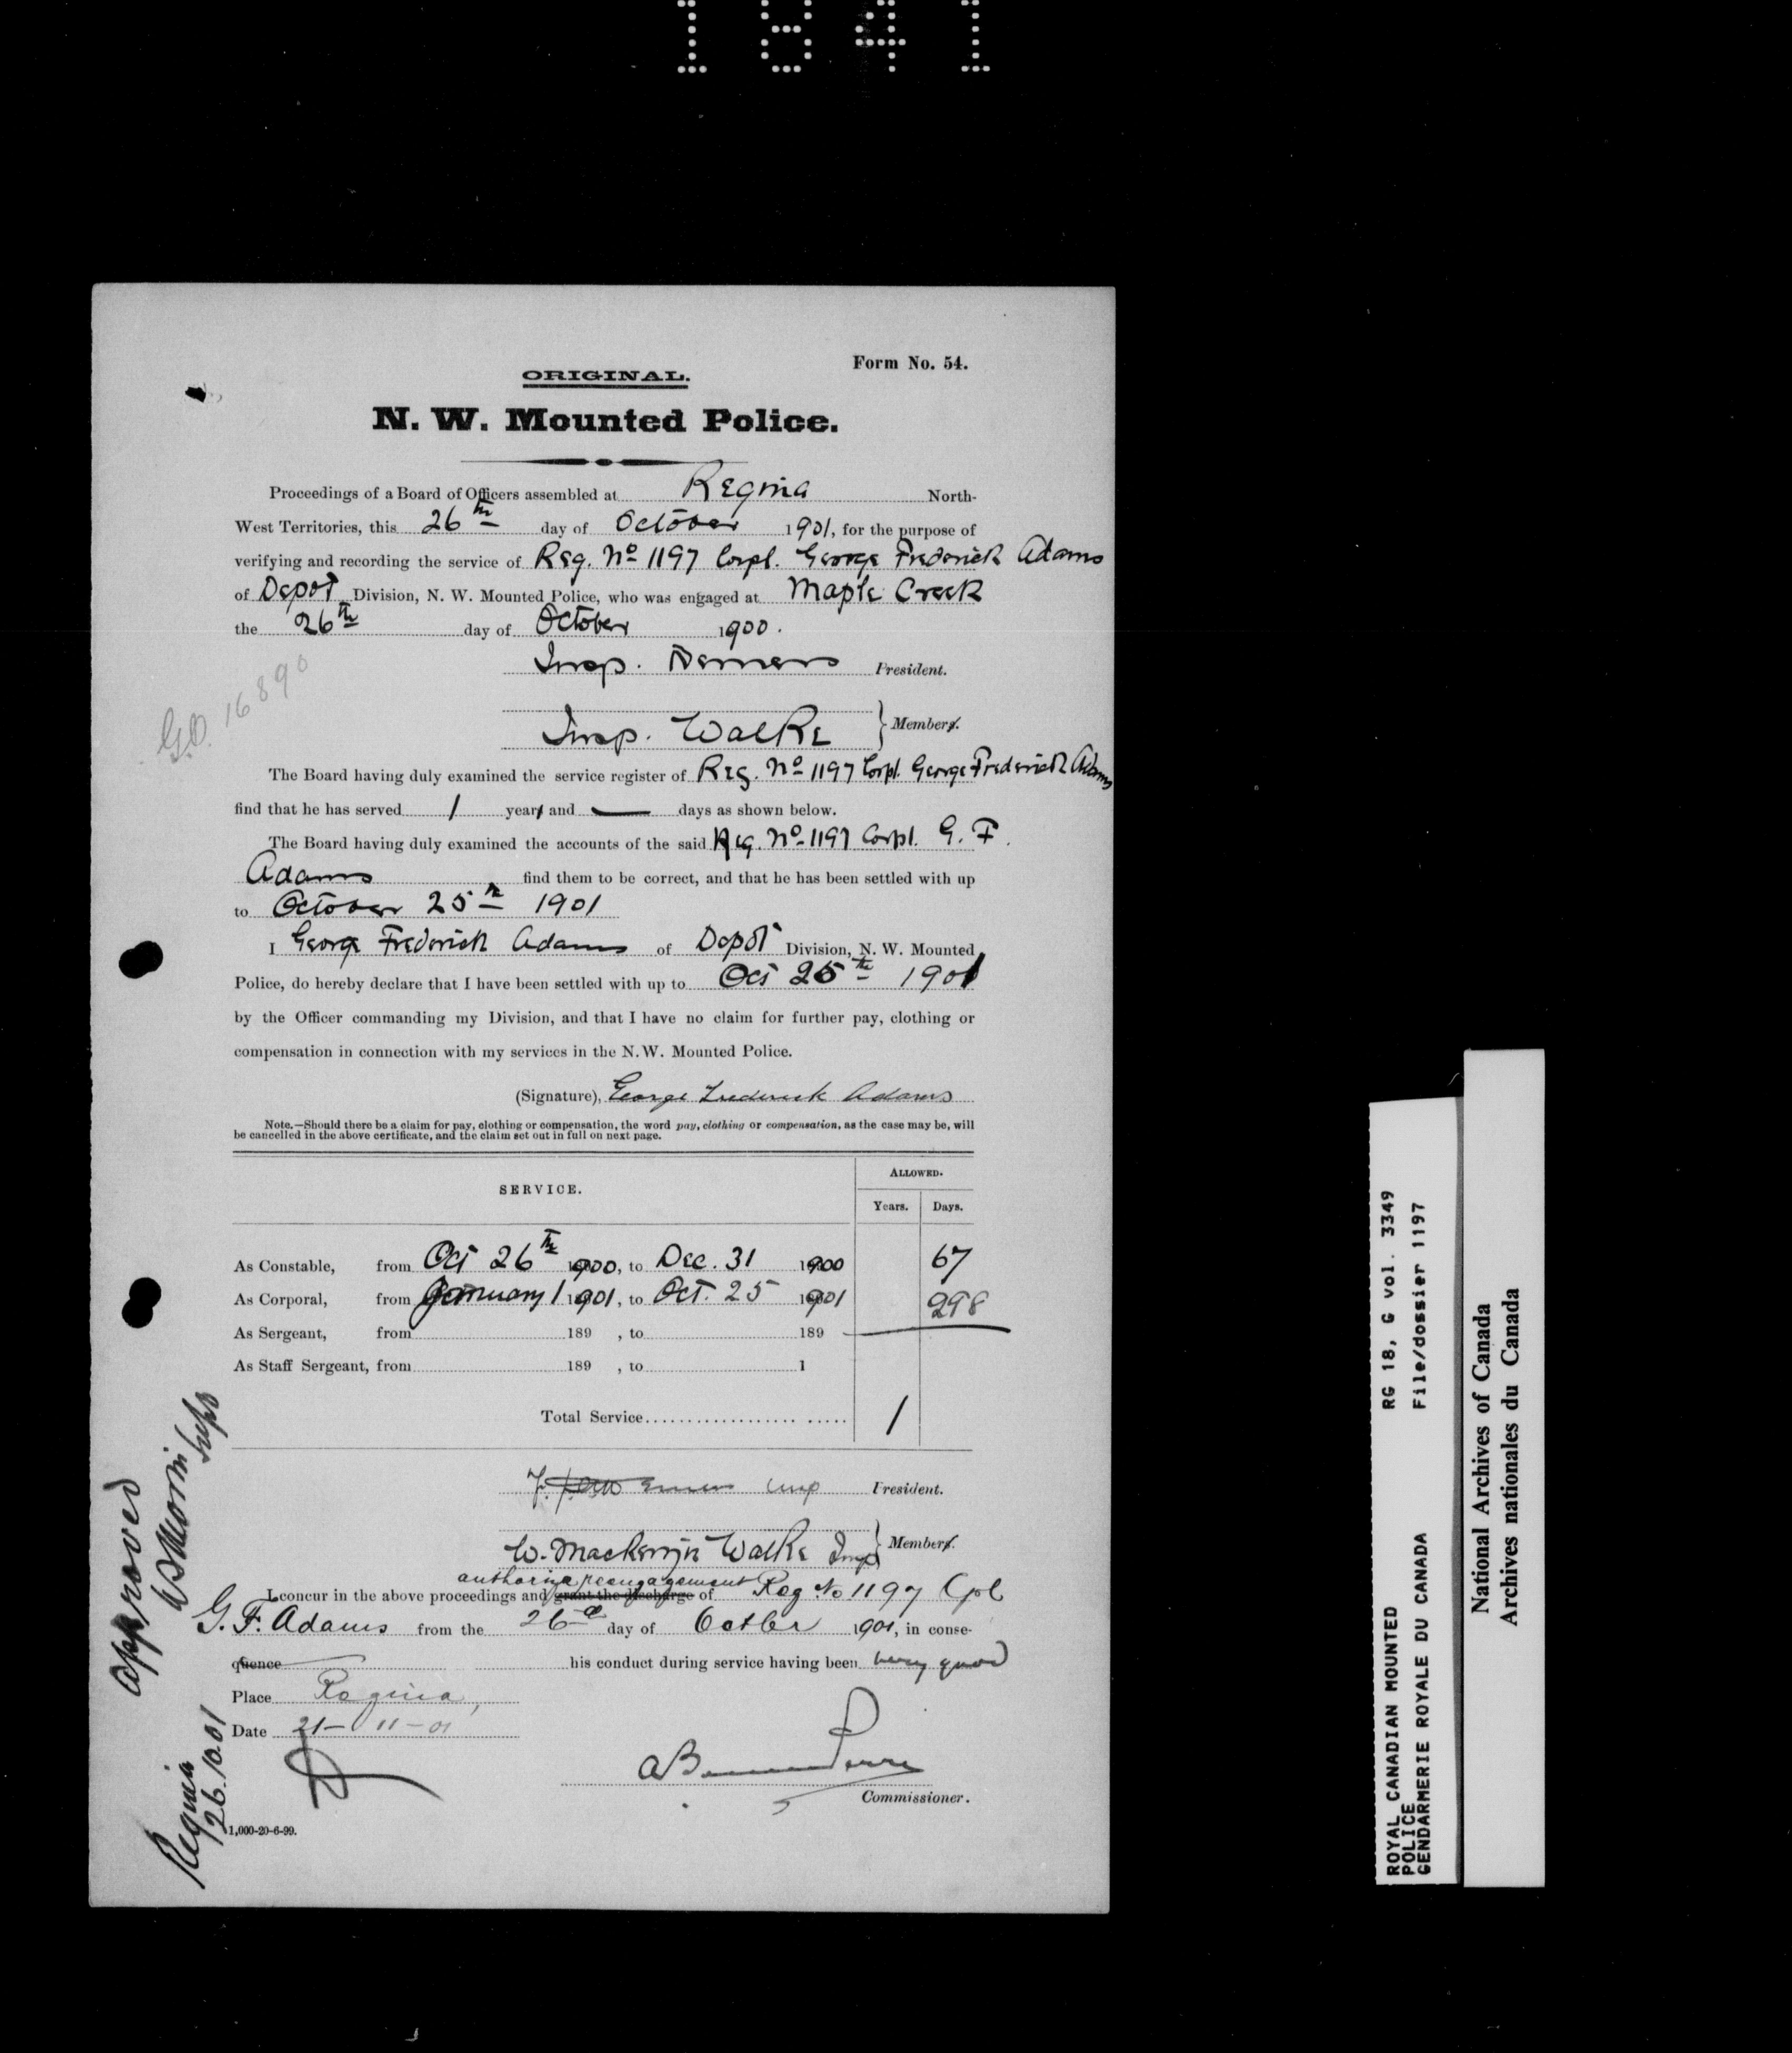 1841
Form No. 54.
ORIGINAL.
N. W. Mounted Police.
Proceedings of a Board of Officers assembled at Regina North-
West Territories, this 26th day of October 1901, for the purpose of
verifying and recording the service of Reg. No 1197 Corpl. George Frederick Adams
of Depot Division, N. W. Mounted Police, who was engaged at Maple Creek
the 26th day of October 1900.
Insp. Demers President.
Insp. Walke } Members.
G.O. 16890
The Board having duly examined the service register of Reg. No 1197 Corpl. George Frederick Adams
find that he has served 1 years and — days as shown below.
The Board having duly examined the accounts of the said Reg. No 1197 Corpl. G. F.
Adams find them to be correct, and that he has been settled with up
to October 25th 1901
I George Frederick Adams of Depot Division, N. W. Mounted
Police, do hereby declare that I have been settled with up to Oct 25th 1901
by the Officer commanding my Division, and that I have no claim for further pay, clothing or
compensation in connection with my services in the N.W. Mounted Police.
(Signature), George Frederick Adams
Note.—Should there be a claim for pay, clothing or compensation, the word pay, clothing or compensation, as the case may be, will
be cancelled in the above certificate, and the claim set out in full on next page.
SERVICE. ALLOWED.
Years. Days.
As Constable, from Oct 26th 1900, to Dec. 31 1900 67
As Corporal, from January 1 1901, to Oct. 25 1901 298
As Sergeant, from 189 , to 189
As Staff Sergeant, from 189 , to 1
Total Service 1
Insp President.
W. Mackenzie Walke Insp } Members.
authorize reengagement
I concur in the above proceedings and grant the discharge of Reg No 1197 Cpl
G. F. Adams from the 26th day of October 1901, in conse-
quence his conduct during service having been very good
Place Regina,
Date 21-11-01
A B Perry
Commissioner.
1,000-20-6-99.
Approved
Supt
Regina
26.10.01
ROYAL CANADIAN MOUNTED RG 18, G vol. 3349
POLICE
GENDARMERIE ROYALE DU CANADA File/dossier 1197
National Archives of Canada
Archives nationales du Canada